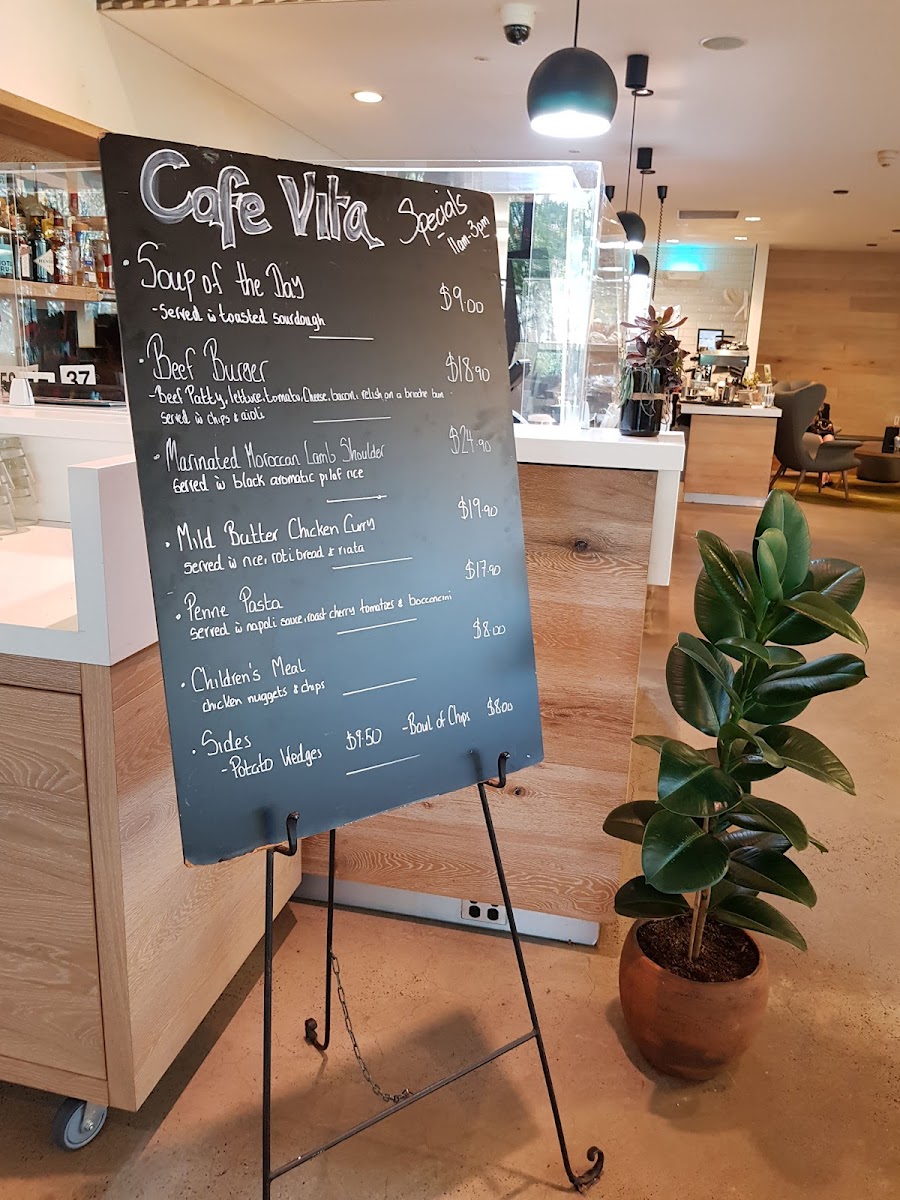 Cafe Vita Specials
11am-3pm
• Soup of the Day $9.00
- Served w toasted sourdough
• Beef Burger $18.90
- Beef Patty, lettuce, tomato, Cheese, bacon, relish on a brioche bun
Served w chips & aioli
• Marinated Moroccan Lamb Shoulder $24.90
Served w black aromatic pilaf rice
• Mild Butter Chicken Curry $19.90
Served w rice, roti bread & riata
• Penne Pasta $17.90
Served w napoli sauce, roast cherry tomatoes & bocconcini
• Children's Meal $8.00
chicken nuggets & chips
• Sides
- Potato Wedges $9.50 - Bowl of Chips $8.00
37